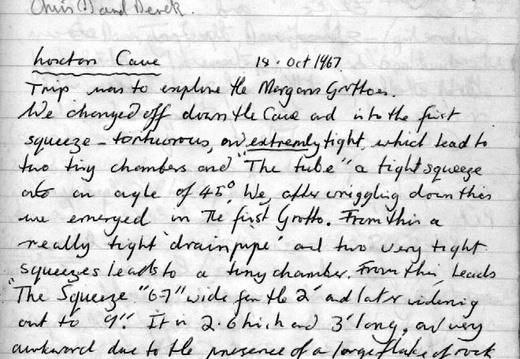 Chris () and Derek.
Loxton Cave 18. Oct 1967
Trip was to explore the Morgans Grottoes.
We changed off down the Cave and into the first
squeeze - tortuorous, and extremly tight, which lead to
two tiny chambers and "The tube" a tight squeeze
on an agle of 45°. We, after wriggling down this
we emerged in The first Grotto. From this a
really tight 'drainpipe' and two very tight
squeezes leads to a tiny chamber. From this, leads
"The Squeeze." 6-7" wide for the 2' and later widening
out to 9". It is 2.6 high and 3' long, and very
awkward due to the presence of a large flake of rock